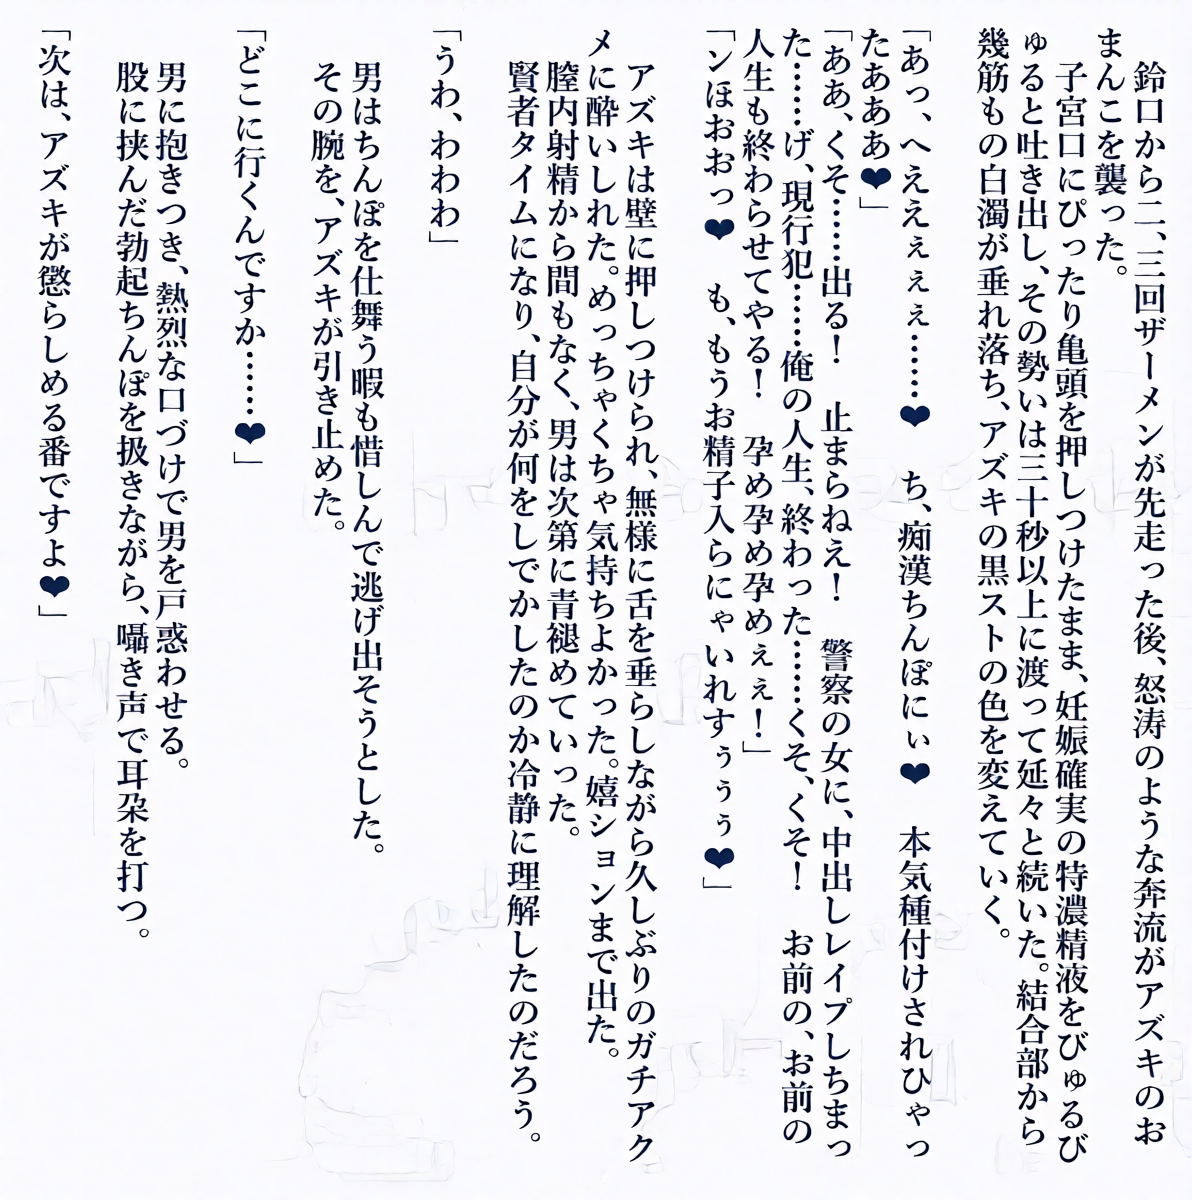 鈴口から二、三回ザーメンが先走った後、怒涛のような奔流がアズキのお
まんこを襲った。
　子宮口にぴったり亀頭を押しつけたまま、妊娠確実の特濃精液をびゅるび
ゅると吐き出し、その勢いは三十秒以上に渡って延々と続いた。結合部から
幾筋もの白濁が垂れ落ち、アズキの黒ストの色を変えていく。
「あっ、へええぇぇぇ……❤　ち、痴漢ちんぽにぃ❤　本気種付けされひゃっ
たあああ❤」
「ああ、くそ……出る！　止まらねえ！　警察の女に、中出しレイプしちまっ
た……げ、現行犯……俺の人生、終わった……くそ、くそ！　お前の、お前の
人生も終わらせてやる！　孕め孕め孕めぇぇ！」
「ンほおおっ❤　も、もうお精子入らにゃいれすぅぅぅ❤」
　アズキは壁に押しつけられ、無様に舌を垂らしながら久しぶりのガチアク
メに酔いしれた。めっちゃくちゃ気持ちよかった。嬉ションまで出た。
　膣内射精から間もなく、男は次第に青褪めていった。
　賢者タイムになり、自分が何をしでかしたのか冷静に理解したのだろう。
「うわ、わわわ」
　男はちんぽを仕舞う暇も惜しんで逃げ出そうとした。
　その腕を、アズキが引き止めた。
「どこに行くんですか……❤」
　男に抱きつき、熱烈な口づけで男を戸惑わせる。
　股に挟んだ勃起ちんぽを扱きながら、囁き声で耳朶を打つ。
「次は、アズキが懲らしめる番ですよ❤」